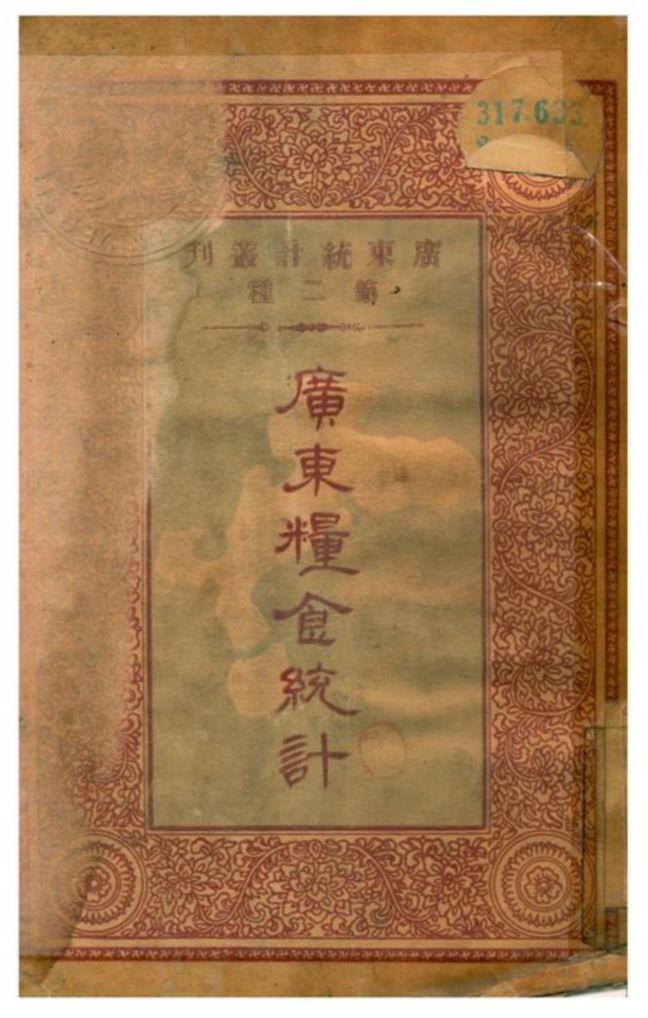 317.633
廣東統計叢刊
第二種
廣東糧食統計